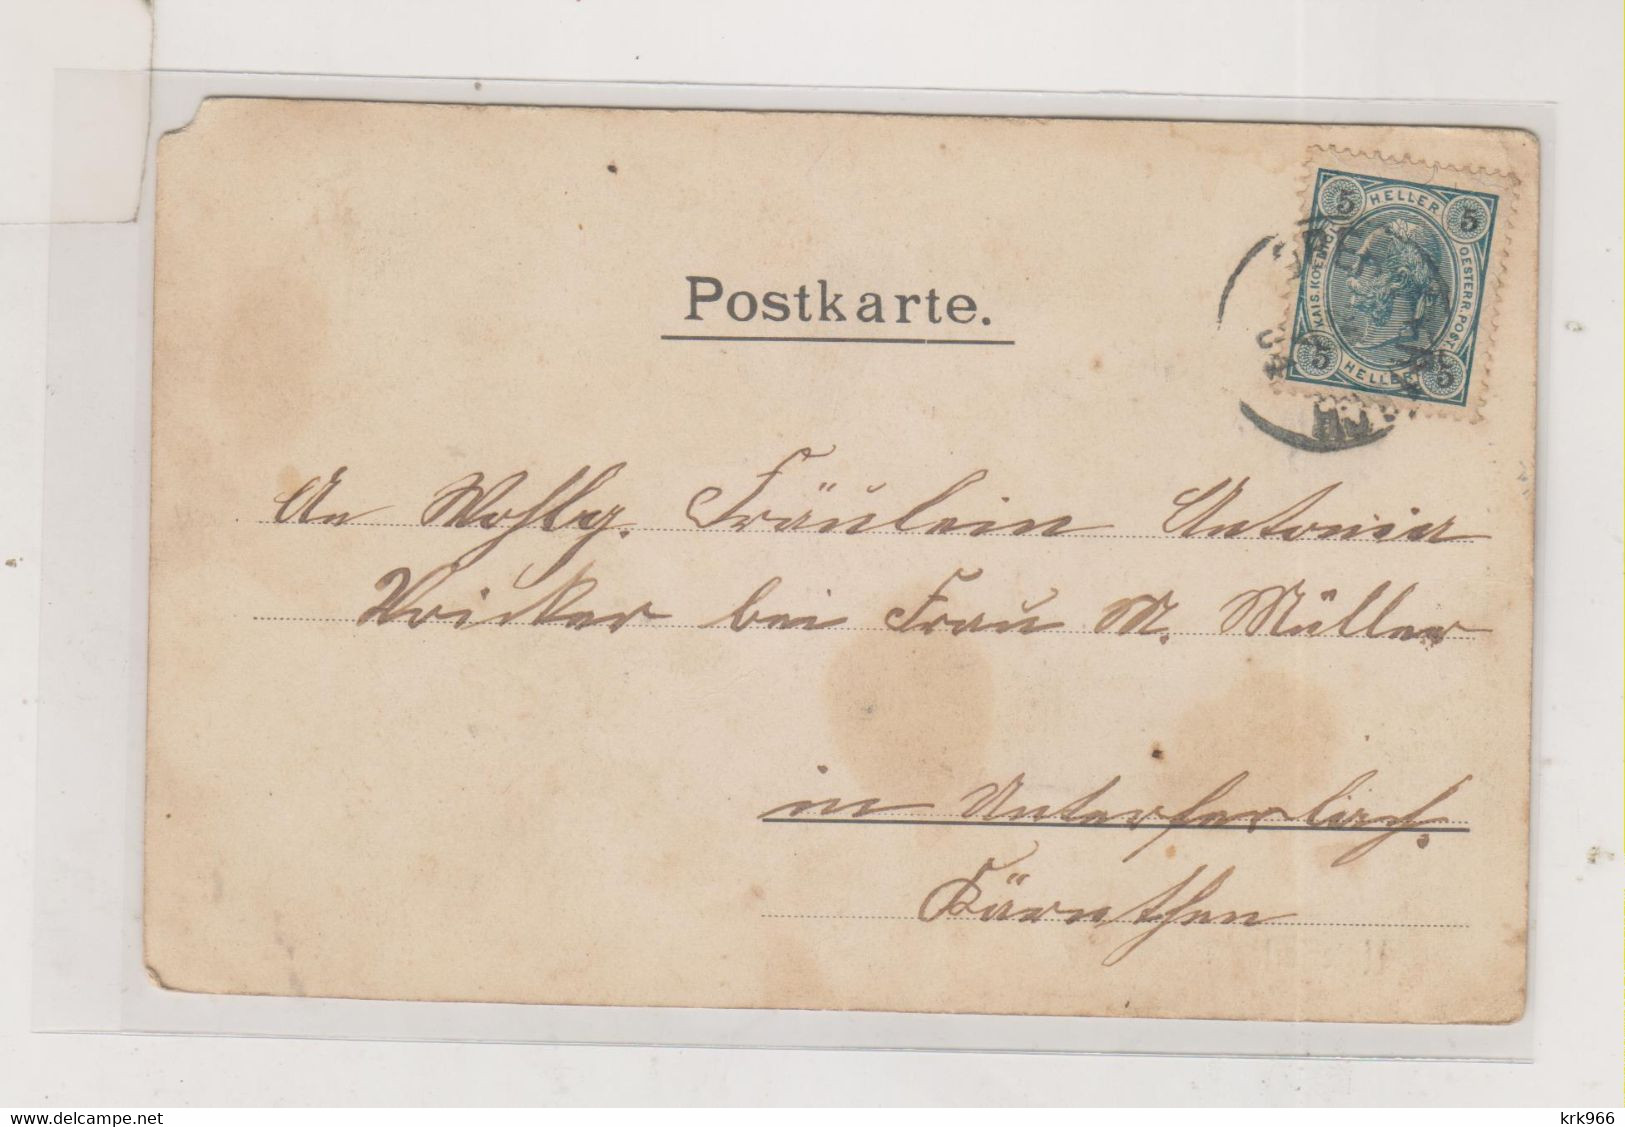 5 HELLER 5
KAIS. KOENIGL. OESTERR. POST.
5 HELLER 5
Postkarte.
An Wohlg. Fräulein Antonia
bei Frau M. Müller
in Unterferlach.
Kärnthen
www.delcampe.net
krk966